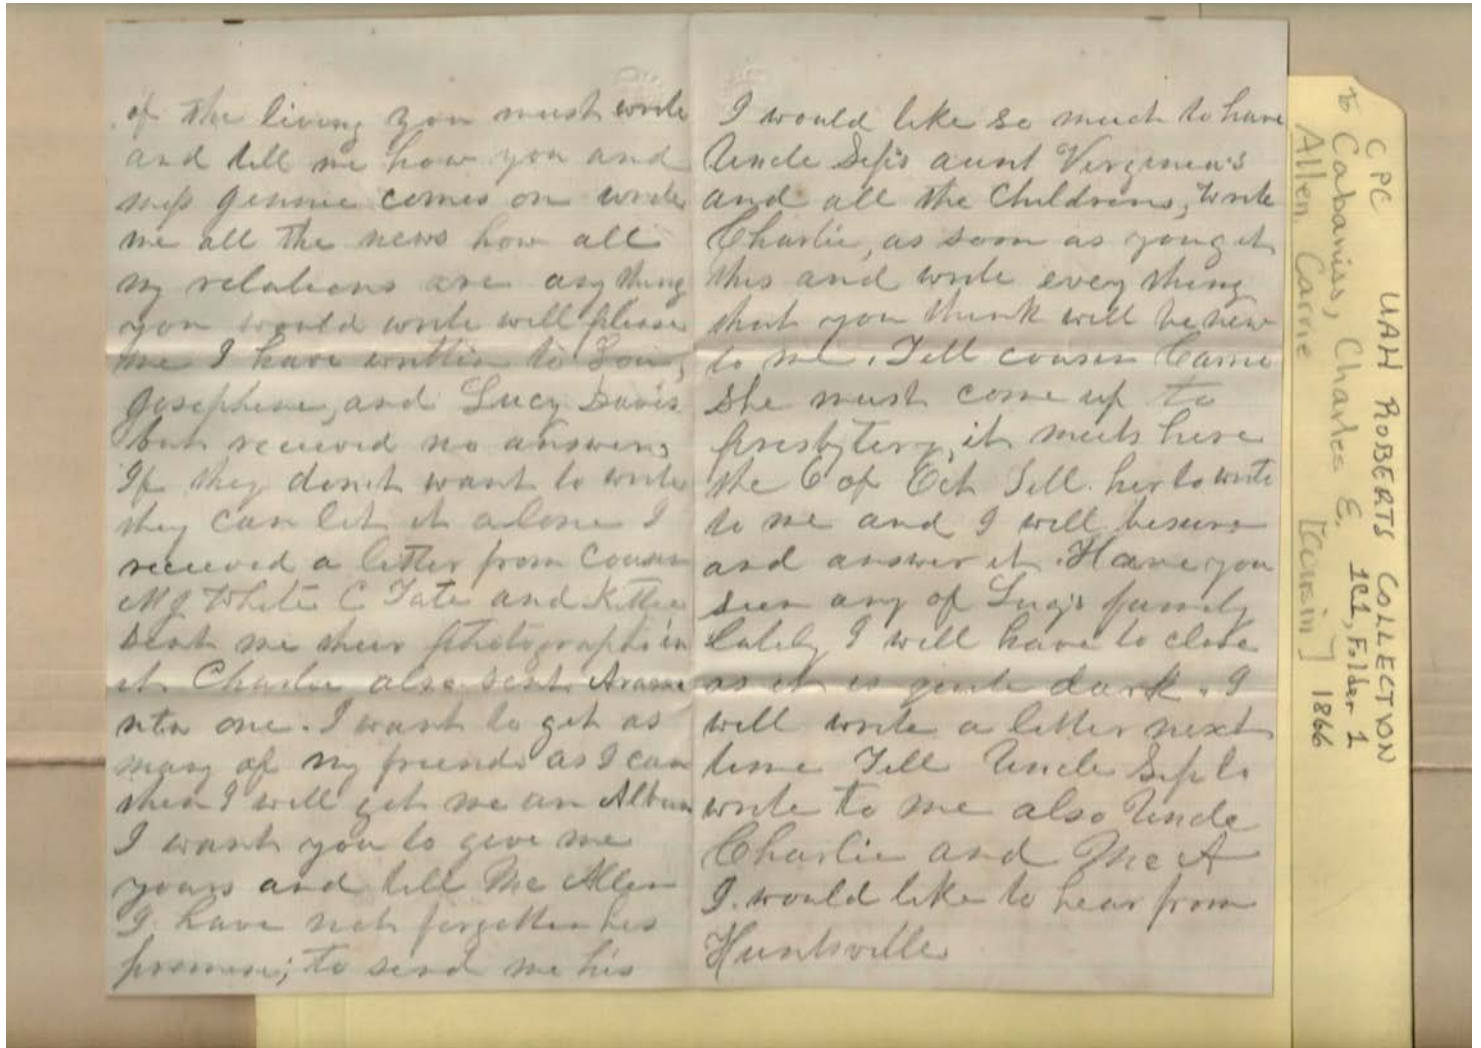 of the living you must write
and tell me how you and
miss Jennie comes on write
me all the news how all
my relations are any thing
you would write will please
me I have written to Lou,
Josephine, and Lucy Davis
but received no answer,
If they don't want to write
they can let it alone I
received a letter from Cousin
M J White C Tate and Kittie
sent me their photographs in
it Charlie also sent Arame
nta one. I want to get as
many of my friends as I can
then I will get me an Album
I want you to give me
yours and tell Mc Allen
I have not forgotten his
promise; to send me his
I would like so much to have
Uncle Sep's aunt Virginia's
and all the Childrens, write
Charlie, as soon as you get
this and write every thing
that you think will be new
to me. Tell cousin Carrie
She must come up to
presbytery, it meets here
the 6 of Oct Tell her to write
to me and I will besure
and answer it. Have you
seen any of Lucy's family
lately I will have to close
as it is quite dark. I
will write a letter next
time Tell Uncle Sep to
write to me also Uncle
Charlie and Mc A
I would like to hear from
Huntsville
CPC UAH ROBERTS COLLECTION
1C1, Folder 1
To Cabaniss, Charles E. 1866
Allen Carrie [Cousin]